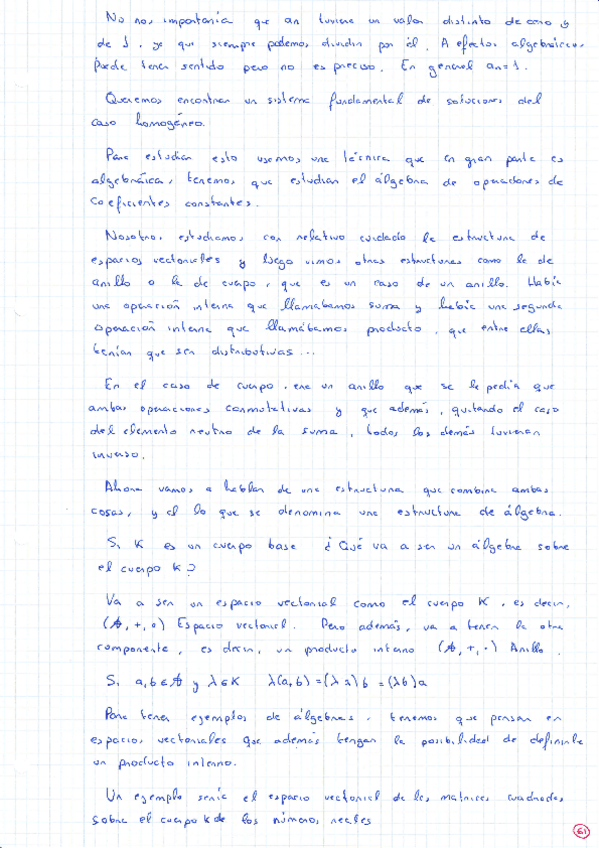 No nos importaría que an tuviene un valor distinto de cero y
de 1, ya que siempre podemos dividir por él. A efectos algebráicos
Puede tener sentido pero no es preciso. En general an=1.
Queremos encontrar un sistema fundamental de soluciones del
caso homogéneo.
Para estudiar esto usemos una técnica que en gran parte es
algebráica, tenemos que estudiar el álgebra de operadores de
coeficientes constantes.
Nosotros estudiamos con relativo cuidado la estructura de
espacios vectoriales y luego vimos otras estructuras como la de
anillo o la de cuerpo, que es un caso de un anillo. Había
una operación interna que llamábamos suma y había una segunda
operación interna que llamábamos producto, que entre ellas
tenían que ser distributivas...
En el caso de cuerpo, era un anillo que se le pedía que
ambas operaciones conmutativas y que además, quitando el caso
del elemento neutro de la suma, todos los demás tuvieran
inverso.
Ahora vamos a hablar de una estructura que combina ambas
cosas, y el lo que se denomina una estructura de álgebra.
Si K es un cuerpo base ¿Qué va a ser un álgebra sobre
el cuerpo K?
Va a ser un espacio vectorial como el cuerpo K, es decir,
(A, +, ∘) Espacio vectorial. Pero además, va a tener la otra
componente, es decir, un producto interno (A, +, ·) Anillo.
Si a,b∈A y λ∈K λ(a,b) =(λ a)b =(λb)a
Para tener ejemplos de álgebras, tenemos que pensar en
espacios vectoriales que además tengan la posibilidad de definirle
un producto interno.
Un ejemplo sería el espacio vectorial de las matrices cuadradas
sobre el cuerpo K de los números reales
61